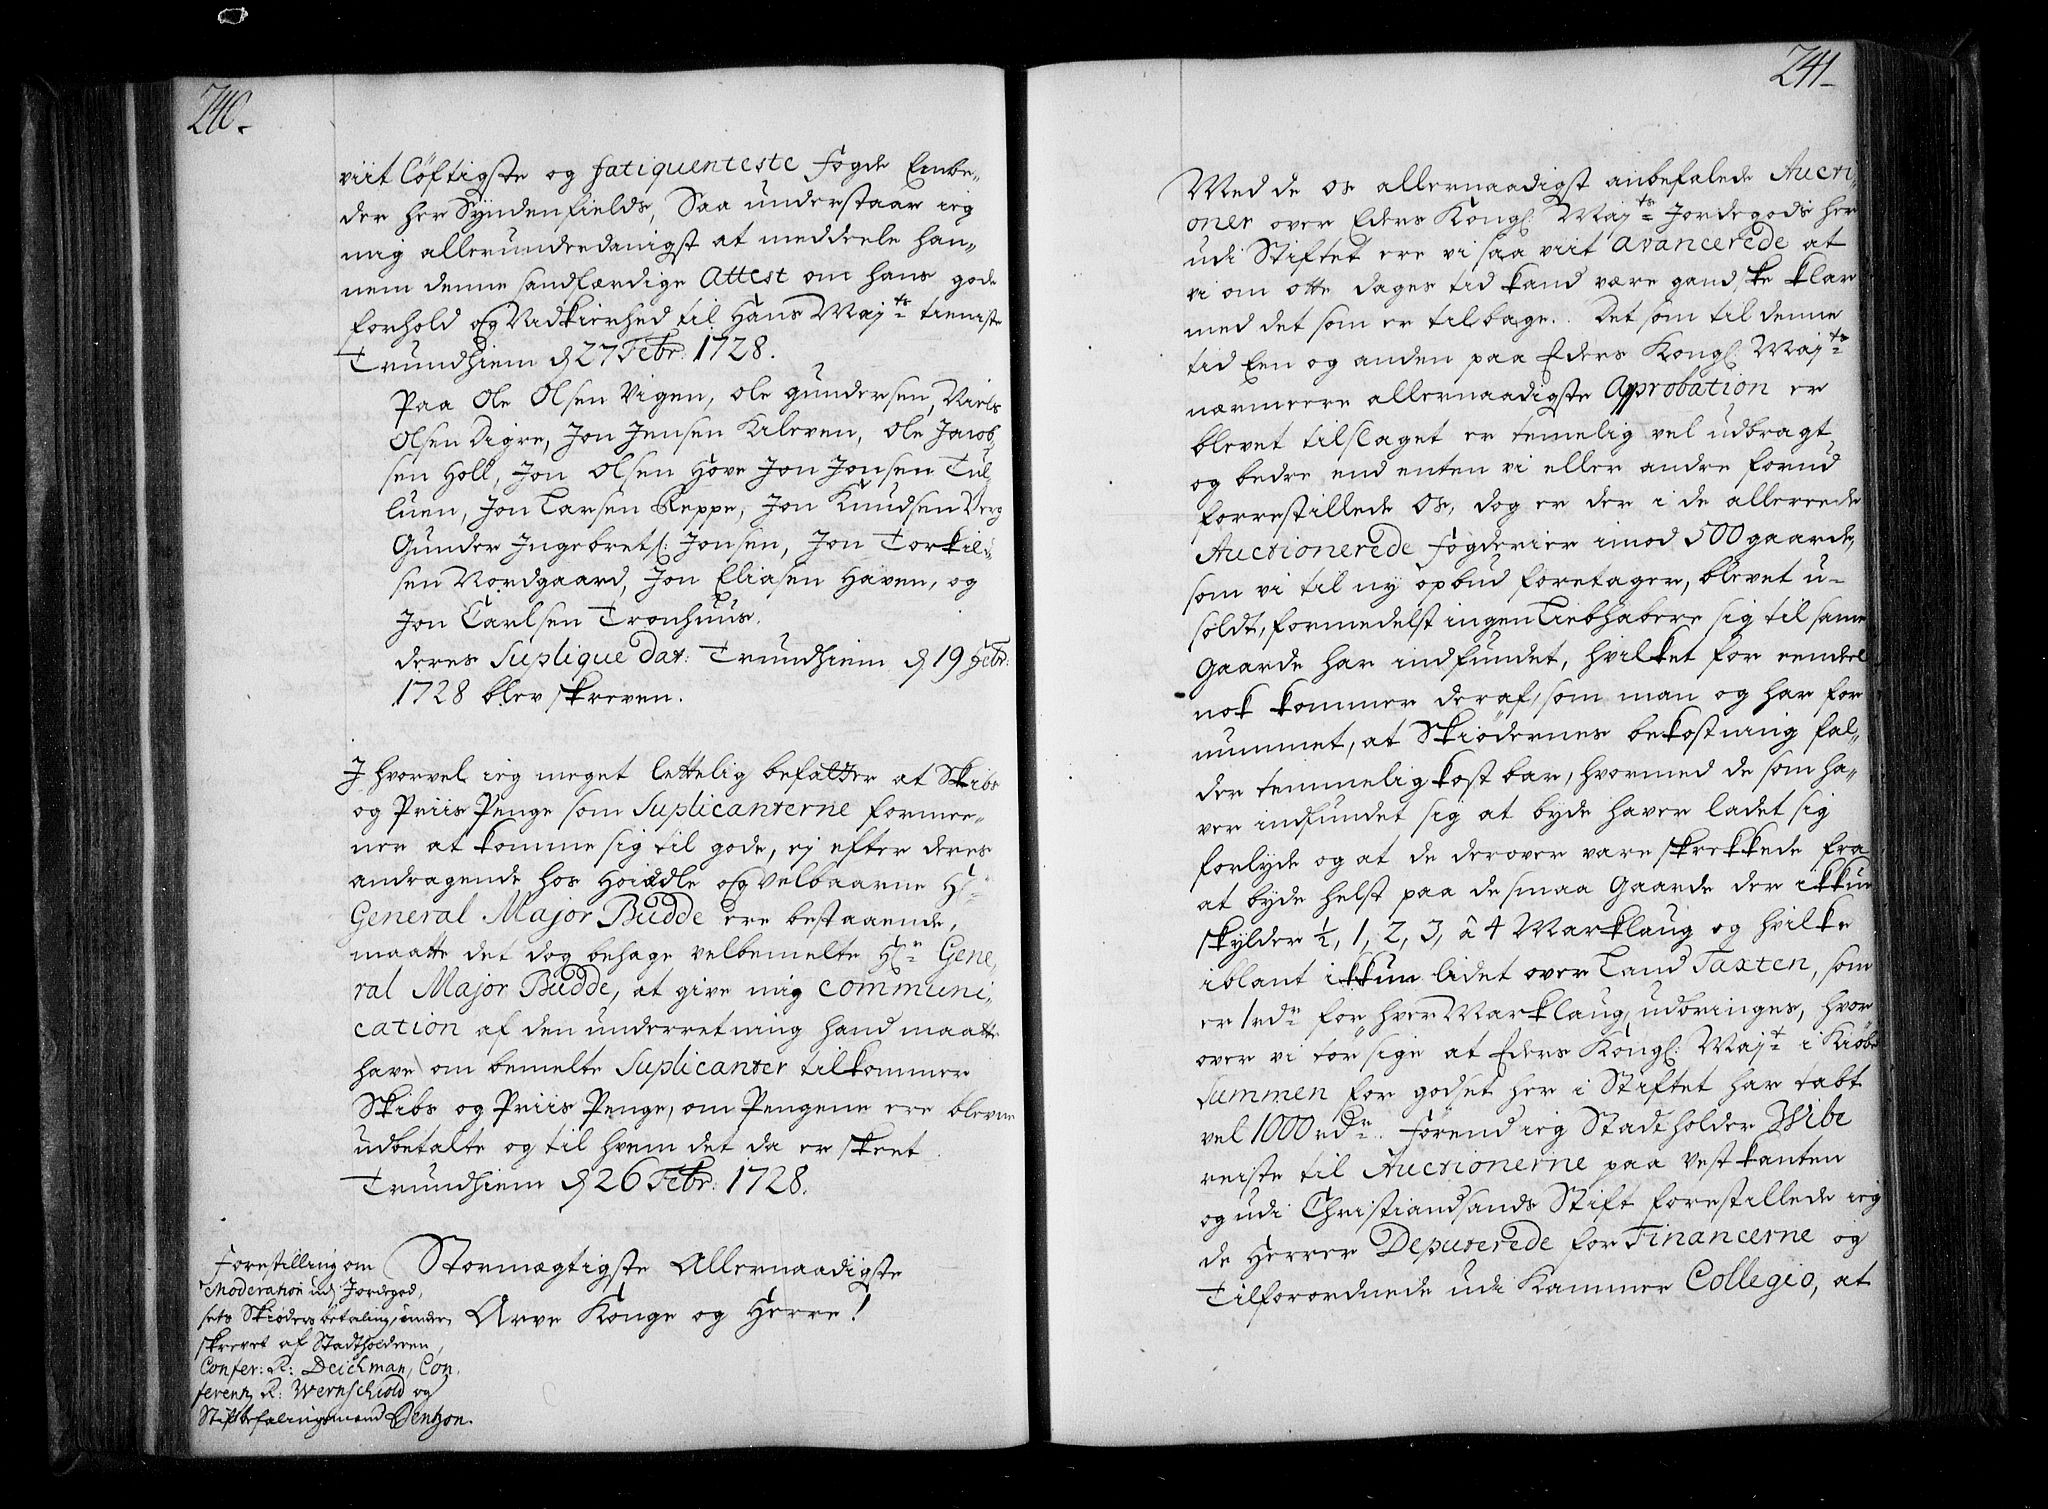 240.
viit löftigste og fatiquenteste fogde Embe„
der her Syndenfields, Saa understaar ieg
mig allerunderdanigst at meddeele han„
nem denne sandfærdige Attest om hans gode
forhold og Vidkierhed til Hans Maj:ts tieniste
Trundhiem d 27 Febr: 1728.
Paa Ole Olsen Vigen, ole gundersen, Niels
Olsen Digre, Jon Jensen Kleven, ole Jacob„
sen Holl, Jon Olsen Hove Jon Jonsen Tul„
luen, Jon Larsen Reppe, Jon Knudsen Berg
Gunder Ingebrets: Jonsen, Jon Torkil„
sen Nordgaard, Jon Eliasen Haven, og
Jon Carlsen Tronhuus.
deres Suplique dat: Trundhiem d 19 Febr:
1728 blev skreven.
J hvorvel ieg meget lettelig befatter at Skibs
og Priis Penge som Suplicanterne formee„
ner at komme sig til gode, ej efter deres
andragende hos Hoiædle og Velbaarne Hr
General Major Budde ere bestaaende,
maatte det dog behage velbemelte Hr Gene„
ral Major Budde, at give mig communi„
cation af den underretning hand maatte
have om bemelte Suplicanter tilkommer
Skibs og Priis Penge, om Pengene ere blevne
udbetalte og til hvem det da er skeet
Trundhiem d 26 Febr: 1728.
Forestilling om
Moderation udj Jordegod„
sets Skiøders betaling, under„
skrevet af Stadtholderen,
Confer: R: Deichman, Con„
ferentz R: Wernschiold og
Stiftbefalingsmand Bentzon.
Stormægtigste Allernaadigste
Arve Konge og Herre!
241
Med de os allernaadigst anbefalede Aucti„
oner over Eders Kongl: Maj:ts Jordegods her
udi Stiftet ere vi saa viit avancerede at
vi om otte dages tid kand være gand„ske klar
med det som er tilbage. Det som til denne
tid Een og anden paa Eders Kongl: Maj:ts
nærmeere allernaadigste Approbation er
blevet tilslaget er temelig vel udbragt
og bedre end enten vi eller andre forud
forrestillede Os, dog er der i de allereede
Auctionerede fogderier imod 500 gaarde,
som vi til ny opbud foretager, blevet u-
soldt, formedelst ingen Liebhabere sig til same
Gaarde har indfundet, hvilket for eendeel
nok kommer deraf, som man og har for
nummet, at Skiödernes bekostning fal„
der temmelig kost bar, hvormed de som ha„
ver indfundet sig at byde haver ladet sig
forlyde og at de derover vare skrekkede fra
at byde helst paa de smaa Gaarde der ikkun
skylder ½, 1, 2, 3, â 4 Marklaug og hvilke
iblant ikkun lidet over Land Taxten, som
er 1 rdr for hver Marklaug, udbringes, hvor
over vi tör sige at Eders Kongl: Maj:t i Kiöbe
Summen for godset her i Stiftet har tabt
vel 1000 rdr. Förend ieg Stadtholder Wibe
reiste til Auctionerne paa Vestkanten
og udi Christiandsands Stift forestillede ieg
de Herrer Deputerede for Financerne og
Tilforordnede udi Kammer Collegio, at